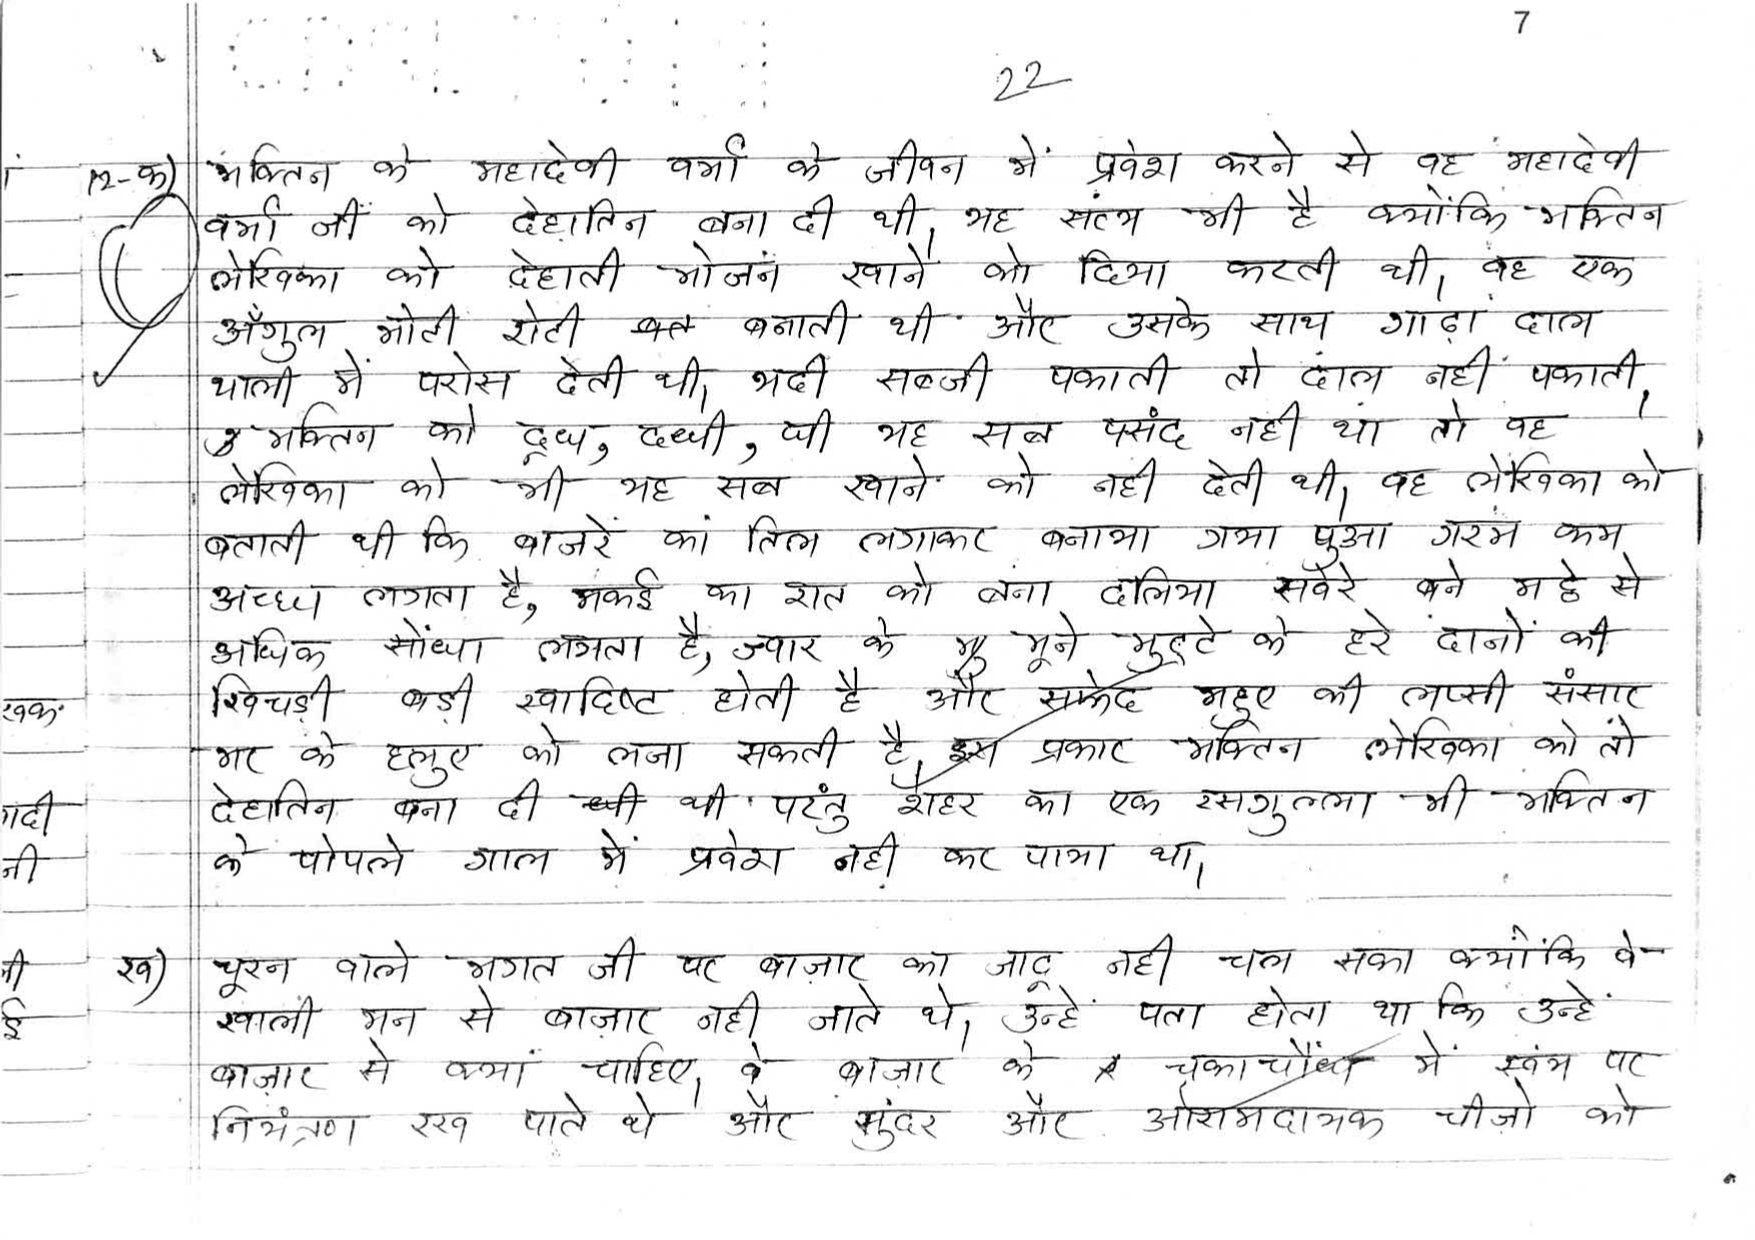 7
22
12-क) भक्तिन के महादेवी वर्मा के जीवन में प्रवेश करने से वह महादेवी
वर्मा जी को देहातिन बना दी थी, यह सत्य भी है क्योंकि भक्तिन
लेखिका को देहाती भोजन खाने को दिया करती थी, वह एक
अँगुल मोटी रोटी बनाती थी और उसके साथ गाढ़ा दाल
थाली में परोस देती थी, यदी सब्जी पकाती तो दाल नहीं पकाती,
भक्तिन को दूध, दधी, घी यह सब पसंद नही था तो वह
लेखिका को भी यह सब खाने को नही देती थी, वह लेखिका को
बताती थी कि बाजरें का तिल लगाकर बनाया गया पुआ गरम कम
अच्छा लगता है, मकई का रात को बना दलिया सवेरे बने मठ्ठे से
अधिक सोंधा लगता है, ज्वार के भूने भुट्टे के हरे दानों की
खिचड़ी बड़ी स्वादिष्ट होती है और सफेद महुए की लप्सी संसार
भर के हलुए को लजा सकती है, इस प्रकार भक्तिन लेखिका को तो
देहातिन बना दी थी परंतु शहर का एक रसगुल्ला भी भक्तिन
के पोपले गाल में प्रवेश नही कर पाया था,
ख) चूरन वाले भगत जी पर बाज़ार का जादू नही चल सका क्योंकि वे
खाली मन से बाज़ार नही जाते थे, उन्हें पता होता था कि उन्हें
बाज़ार से क्या चाहिए, वे बाज़ार के चकाचौंध में स्वंय पर
नियंत्रण रख पाते थे और सुंदर और ओरामदायक चीज़ो को
खक
गदी
नी
नी
ई